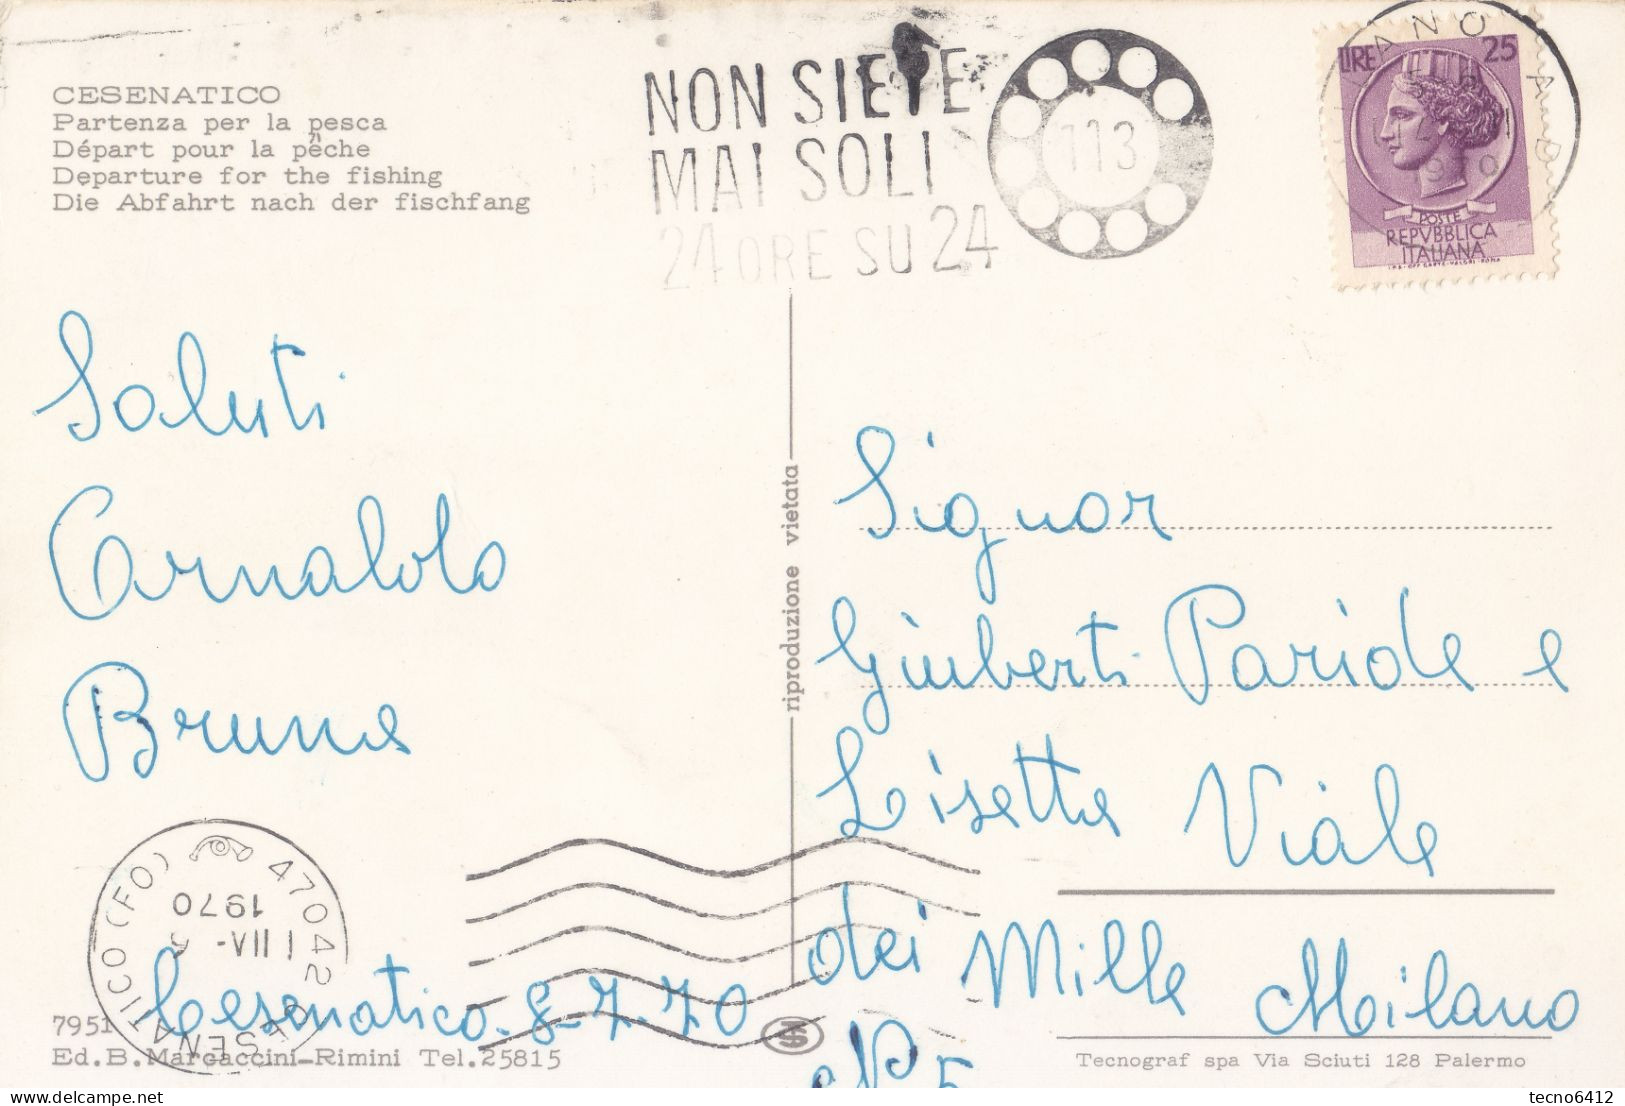 CESENATICO
Partenza per la pesca
Départ pour la pêche
Departure for the fishing
Die Abfahrt nach der fischfang
NON SIETE
MAI SOLI
24 ORE SU 24
113
LIRE 25
POSTE
REPVBBLICA
ITALIANA
I.P.S.-OFF. CARTE-VALORI-ROMA
1970
Saluti
Arnaldo
Bruna
riproduzione vietata
Signor
Giuberti Paride e
Lisetta Viale
dei Mille Milano
N° 5
47042 CESENATICO (FO)
1970
Cesenatico-8-7-70
7951
Ed.B.Marcaccini-Rimini Tel.25815
Tecnograf spa Via Sciuti 128 Palermo
tecno6412